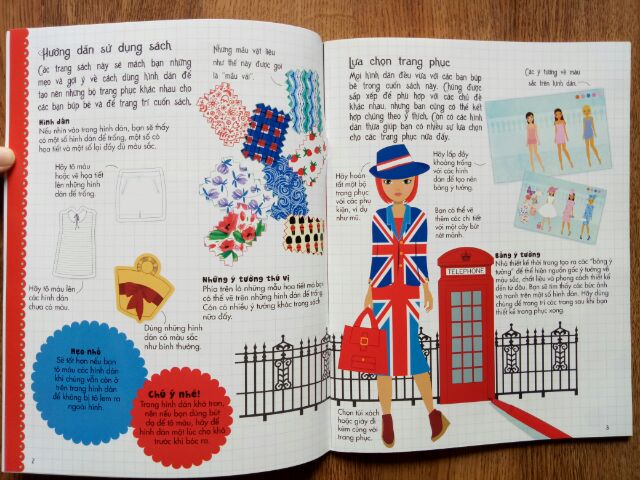 Hướng dẫn sử dụng sách
Các trang sách này sẽ mách bạn những
mẹo và gợi ý về cách dùng hình dán để
tạo nên những bộ trang phục khác nhau cho
các bạn búp bê và để trang trí cuốn sách.
Những mẫu vật liệu
như thế này được gọi
là "mẫu vải".
Hình dán
Nếu nhìn vào trang hình dán, bạn sẽ thấy
có một số hình dán để trống, một số có
họa tiết và một số lại đầy đủ màu sắc.
Hãy tô màu
hoặc vẽ họa tiết
lên những hình
dán để trống.
Hãy tô màu lên
các hình dán
chưa có màu.
Dùng những hình
dán có màu sắc
như bình thường.
Những ý tưởng thú vị
Phía trên là những mẫu họa tiết mà bạn
có thể vẽ trên những hình dán để trống.
Còn có nhiều ý tưởng khác trong sách
nữa đấy.
Mẹo nhỏ
Sẽ tốt hơn nếu bạn
tô màu các hình dán
khi chúng vẫn còn ở
trên trang hình dán
để không bị tô lem ra
ngoài hình.
Chú ý nhé!
Trang hình dán khá trơn,
nên nếu bạn dùng bút
dạ để tô màu, hãy để
hình dán một lúc cho khô
trước khi bóc ra.
2
Lựa chọn trang phục
Mọi hình dán đều vừa với các bạn búp
bê trong cuốn sách này. Chúng được
sắp xếp để phù hợp với các chủ đề
khác nhau, nhưng bạn cũng có thể kết
hợp chúng theo ý thích. Còn có các hình
dán thừa giúp bạn có nhiều sự lựa chọn
cho các trang phục nữa đấy.
Các ý tưởng về màu
sắc trên hình dán.
Hãy hoàn
tất một bộ
trang phục
với các phụ
kiện, ví dụ
như mũ.
Hãy lấp đầy
khoảng trống
với các hình
dán để tạo nên
bảng ý tưởng.
Bạn có thể vẽ
thêm các chi tiết
với một cây bút
nét mảnh.
TELEPHONE
Bảng ý tưởng
Nhà thiết kế thời trang tạo ra các "bảng ý
tưởng" để thể hiện nguồn gốc ý tưởng về
màu sắc, chất liệu và phong cách thiết kế
đến từ đâu. Bạn sẽ tìm thấy các bức ảnh
và tranh trên một số hình dán. Hãy dùng
chúng để trang trí các trang sau khi bạn
thiết kế trang phục xong.
Chọn túi xách
hoặc giày đi
kèm cùng với
trang phục.
3